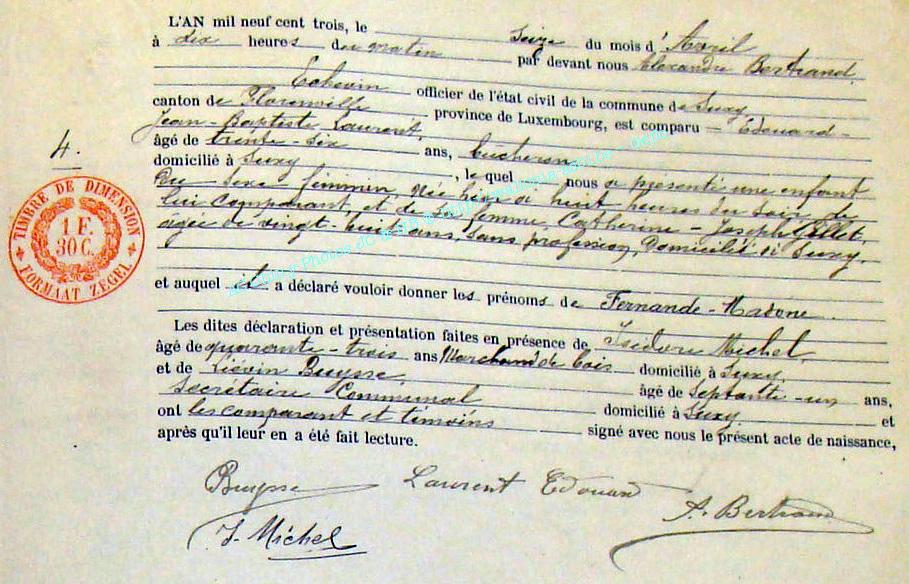 L'AN mil neuf cent trois, le Seize du mois d'Avril
à dix heures du matin par devant nous Alexandre Bertrand
Echevin officier de l'état civil de la commune de Suxy
canton de Florenville province de Luxembourg, est comparu Edouard-
Jean-Baptiste Laurent,
âgé de trente-six ans, bûcheron
domicilié à Suxy, le quel nous a présenté une enfant
Du sexe féminin, née hier à huit heures du soir de
lui comparant, et de sa femme, Catherine-Joseph
âgée de vingt-huit ans, sans profession, Domiciliée à Suxy.
et auquel il a déclaré vouloir donner les prénoms de Fernande-
4.
TIMBRE DE DIMENSION
1 F.
30 C.
FORMAAT ZEGEL
Les dites déclaration et présentation faites en présence de Isidore Michel,
âgé de quarante-trois ans Marchand de bois domicilié à Suxy.
et de Liévin Buysse,
Secrétaire Communal âgé de Septante-un ans,
domicilié à Suxy et
ont les comparant et témoins signé avec nous le présent acte de naissance,
après qu'il leur en a été fait lecture.
Buysse Laurent Edouard A. Bertrand
J. Michel